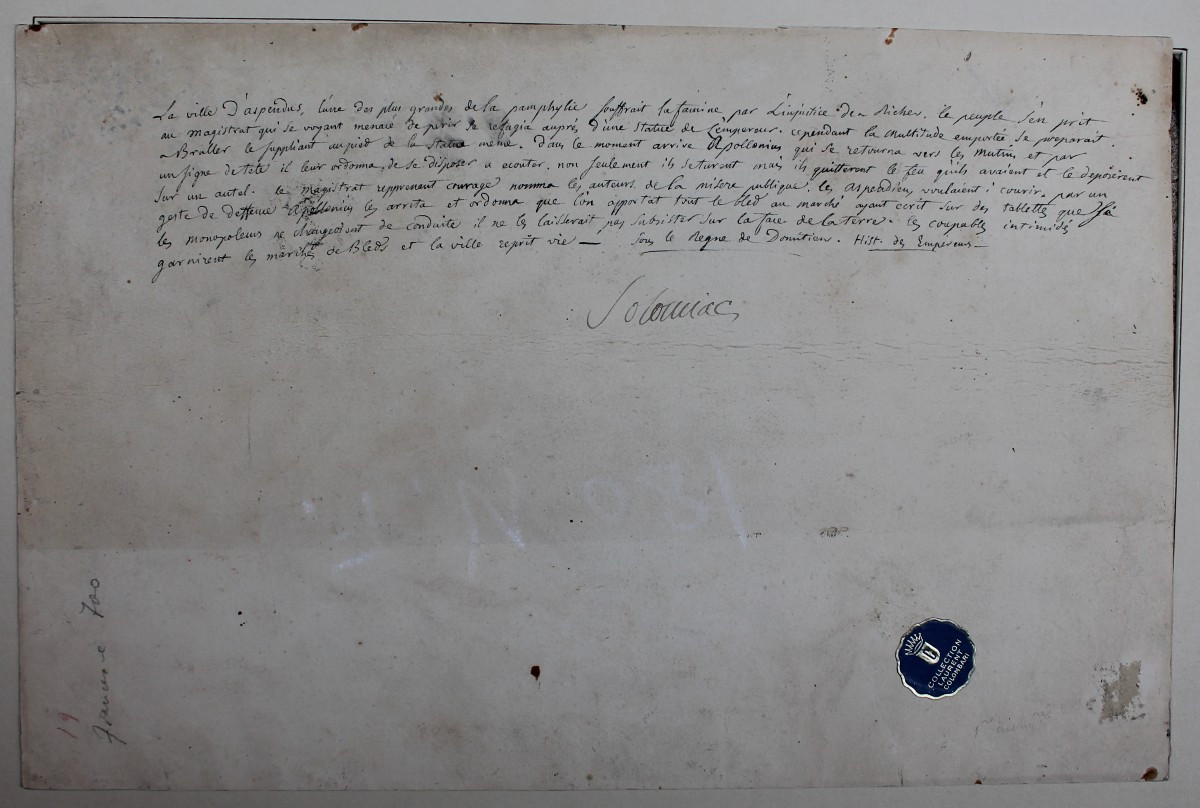 La ville D'aspendus, l'une des plus grandes de la pamphylie souffrait la famine par L'injustice des Riches. le peuple s'en prit
au magistrat qui se voyant menacé de perir se refugia auprés d'une statue de L'empereur. cependant la multitude emportée se preparait
a Bruler le suppliant au pied de la statue meme. Dans le moment arrive Apollonius qui se retourna vers les mutins et par
un signe de tete il leur ordonna, de se disposer a ecouter. non seulement ils se turent mais ils quitterent le feu qu'ils avaient et le deposèrent
sur un autel. le magistrat reprenant courage nomma les auteurs de la misere publique. les aspendiens voulaient i courir, par un
geste de deffense Apollonius les arreta et ordonna que l'on apportat tout le bled au marché ayant ecrit sur des tablettes que si
les monopoleurs ne changeoisent de conduite il ne les laisserait pas subsister sur la face de la terre. les coupables intimidés
garnirent les marchés de Bleds et la ville reprit vie — sous le Regne de Domitien. Hist. des Empereurs —
Solomiac
19
700
COLLECTION
LAURENT
COLOMBARI